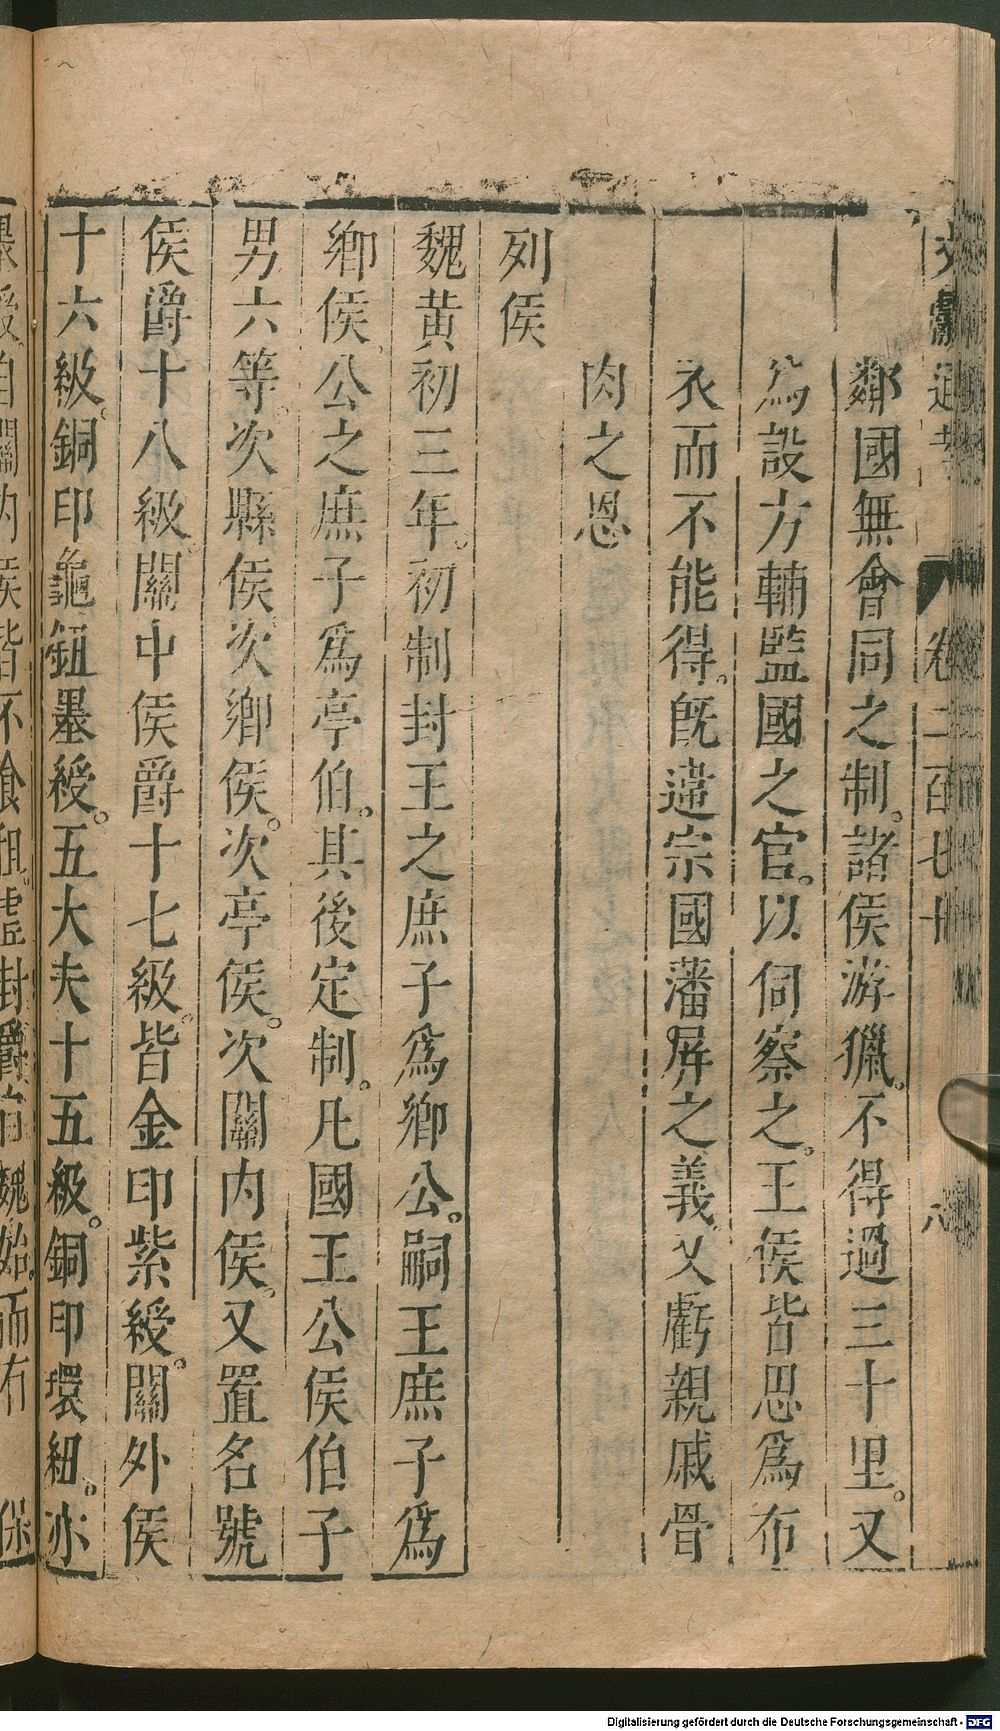 文獻通考 卷二百七十 八
鄰國無會同之制。諸侯游獵。不得過三十里。又
爲設方輔監國之官。以伺察之。王侯皆思爲布
衣而不能得。旣違宗國藩屏之義。又虧親戚骨
肉之恩
列侯
魏黄初三年。初制封王之庶子爲鄉公。嗣王庶子爲
鄉侯。公之庶子爲亭伯。其後定制。凡國王公侯伯子
男六等。次縣侯次鄉侯。次亭侯。次關内侯。又置名號
侯爵十八級。關中侯爵十七級。皆金印紫綬。關外侯
十六級。銅印龜鈕墨綬。五大夫十五級。銅印環鈕。亦
墨綬。自關内侯皆不食租。虛封爵自魏始。而有 保
Digitalisierung gefördert durch die Deutsche Forschungsgemeinschaft - DFG